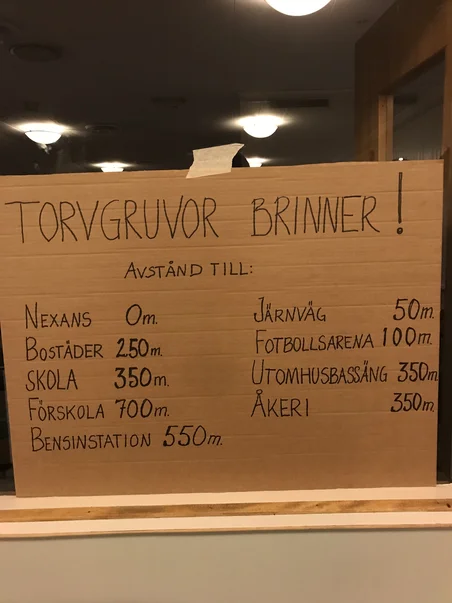 TORVGRUVOR BRINNER!
AVSTÅND TILL:
NEXANS 0m.
BOSTÄDER 250m.
SKOLA 350m.
FÖRSKOLA 700m.
BENSINSTATION 550m.
JÄRNVÄG 50m.
FOTBOLLSARENA 100m.
UTOMHUSBASSÄNG 350m
ÅKERI 350m.